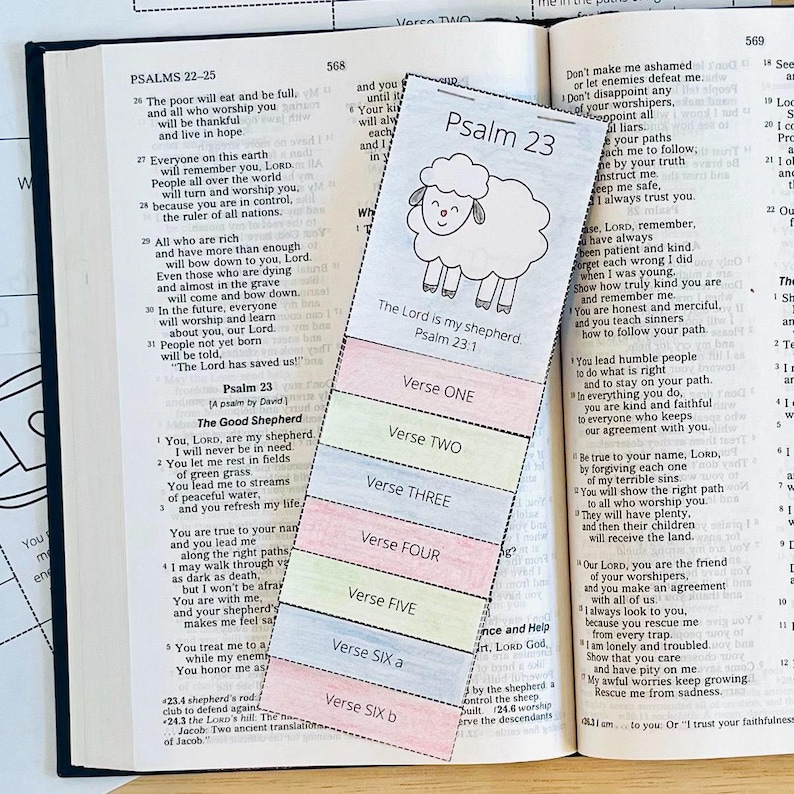 Verse TWO
me in the paths of
PSALMS 22–25
568
26 The poor will eat and be full,
and all who worship you
will be thankful
and live in hope.
27 Everyone on this earth
will remember you, LORD.
People all over the world
will turn and worship you,
28 because you are in control,
the ruler of all nations.
29 All who are rich
and have more than enough
will bow down to you, Lord.
Even those who are dying
and almost in the grave
will come and bow down.
30 In the future, everyone
will worship and learn
about you, our Lord.
31 People not yet born
will be told,
"The Lord has saved us!"
Psalm 23
[A psalm by David.]
The Good Shepherd
1 You, LORD, are my shepherd.
I will never be in need.
2 You let me rest in fields
of green grass.
You lead me to streams
of peaceful water,
3 and you refresh my life.
You are true to your
and you lead me
along the right paths
4 I may walk through
as dark as death,
but I won't be
You are with me,
and your shepherd's
makes me feel
5 You treat me to a
while my
You honor me as
23.4 shepherd's rod:
club to defend against
24.3 the LORD's hill: The
Jacob: Two ancient
of Jacob."
and you
until
Your
Psalm 23
The Lord is my shepherd.
Psalm 23:1
Verse ONE
Verse TWO
Verse THREE
Verse FOUR
Verse FIVE
Verse SIX a
Verse SIX b
and Help
LORD God,
by the shepherd, a
control the sheep.
24.6 worship
the descendants
569
Don't make me ashamed
or let enemies defeat me.
3 Don't disappoint any
of your worshipers,
all liars.
your paths
me to follow;
me by your truth
instruct me.
keep me safe,
I always trust you.
LORD, remember,
have always
been patient and kind.
Forget each wrong I did
when I was young.
Show how truly kind you are
and remember me.
You are honest and merciful,
and you teach sinners
how to follow your path.
9 You lead humble people
to do what is right
and to stay on your path.
10 In everything you do,
you are kind and faithful
to everyone who keeps
our agreement with you.
11 Be true to your name, LORD,
by forgiving each one
of my terrible sins.
12 You will show the right path
to all who worship you.
13 They will have plenty,
and then their children
will receive the land.
14 Our LORD, you are the friend
of your worshipers,
and you make an agreement
with all of us.
15 I always look to you,
because you rescue me
from every trap.
16 I am lonely and troubled.
Show that you care
and have pity on me.
17 My awful worries keep growing.
Rescue me from sadness.
18 See
19
20
21
22
25.3 I am . . . to you: Or "I trust your faithfulness